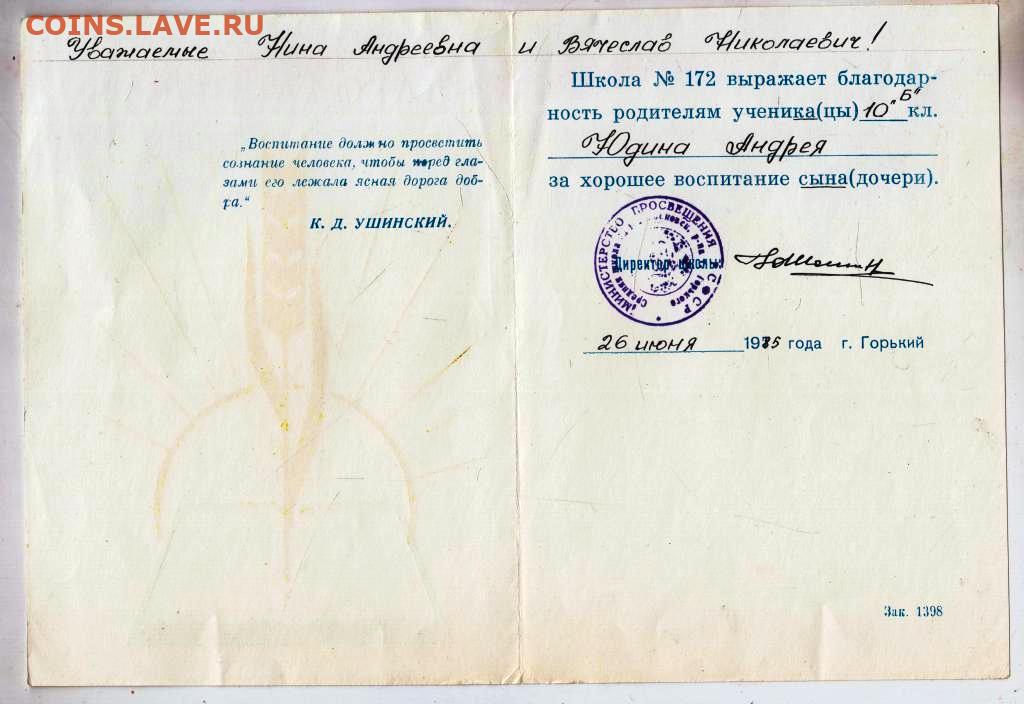 COINS.LAVE.RU
Уважаемые Нина Андреевна и Вячеслав Николаевич!
„Воспитание должно просветить
сознание человека, чтобы перед гла-
зами его лежала ясная дорога доб-
ра.“
К. Д. УШИНСКИЙ.
Школа № 172 выражает благодар-
ность родителям ученика(цы) 10 „Б“ кл.
Юдина Андрея
за хорошее воспитание сына(дочери).
МИНИСТЕРСТВО ПРОСВЕЩЕНИЯ РСФСР
Средняя школа р-на Горького
Директор школы:
26 июня 1985 года г. Горький
Зак. 1398